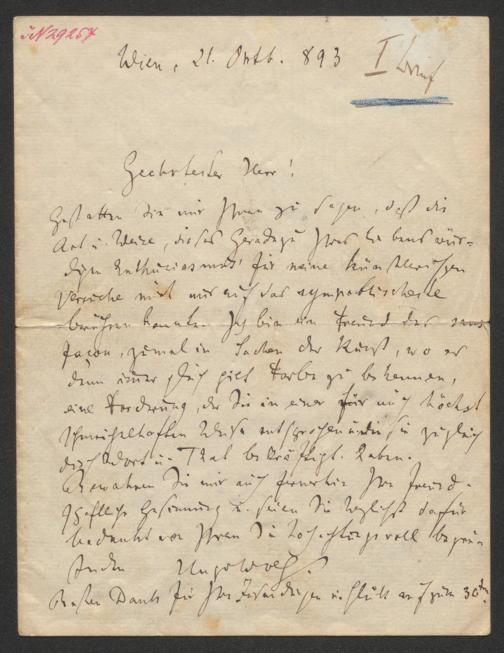 IN 29254
Wien, 21. Oktb. 893
I
Geehrtester Herr!
Gestatten Sie mir Ihnen zu sagen, daß die
Art u. Weise, dieses Geradezu Ihres liebenswür-
digen Enthusiasmus' für meine künstlerischen
Versuche mich nur auf das sympathischeste
berühren konnte. Ich bin ein Freund des sans
façon, zumal in Sachen der Kunst, wo es
denn immer gilt Farbe zu bekennen,
eine Forderung, der Sie in einer für mich höchst
schmeichelhaften Weise entsprochen u. die Sie zugleich
durch Wort u. That bekräftigt haben.
Bewahren Sie mir auch fernerhin Ihre freund-
schaftliche Gesinnung u. seien Sie herzlichst dafür
bedankt von Ihrem Sie hochachtungsvoll begrü-
ßenden Hugo Wolf.
Besten Dank für Ihre u. Glück auf zum 30ten.